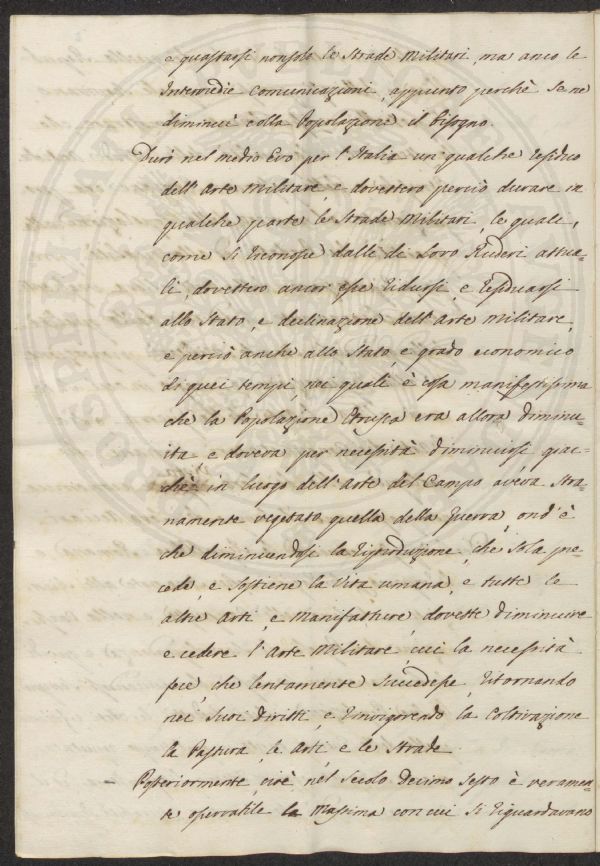 e guastarsi nonsolo le Strade Militari, ma anco le
Intermedie comunicazioni, appunto perchè se ne
diminuì colla Popolazione il Bisogno.
Durò nel medio Evo per l'Italia un qualche residuo
dell'Arte Militare, e dovettero perciò durare in
qualche parte le Strade Militari, le quali,
come si riconosce dalli di loro Ruderi attua=
li, dovettero ancor esse ridursi, e residuarsi
allo Stato, e declinazione dell'Arte Militare,
e perciò anche allo Stato, e grado economico
di quei tempi, nei quali è cosa manifestissima
che la Popolazione Etrusca era allora diminu=
ita e doveva per necessità diminuirsi giac=
chè in luogo dell'Arte del Campo aveva Stra=
namente vegetato quella della Guerra, ond'è
che diminuendosi la riproduzione, che sola pre=
cede, e sostiene la Vita umana, e tutte le
altre Arti, e Manifatture, dovette diminuire
e cedere l'Arte Militare, cui la necessità
fece, che lentamente succedesse, ritornando
nei suoi diritti, e rinvigorendo la Coltivazione
la Pastura, le Arti, e le Strade.
Posteriormente, cioè nel Secolo Decimo Sesto è veramen=
te osservabile la Massima con cui si riguardavano